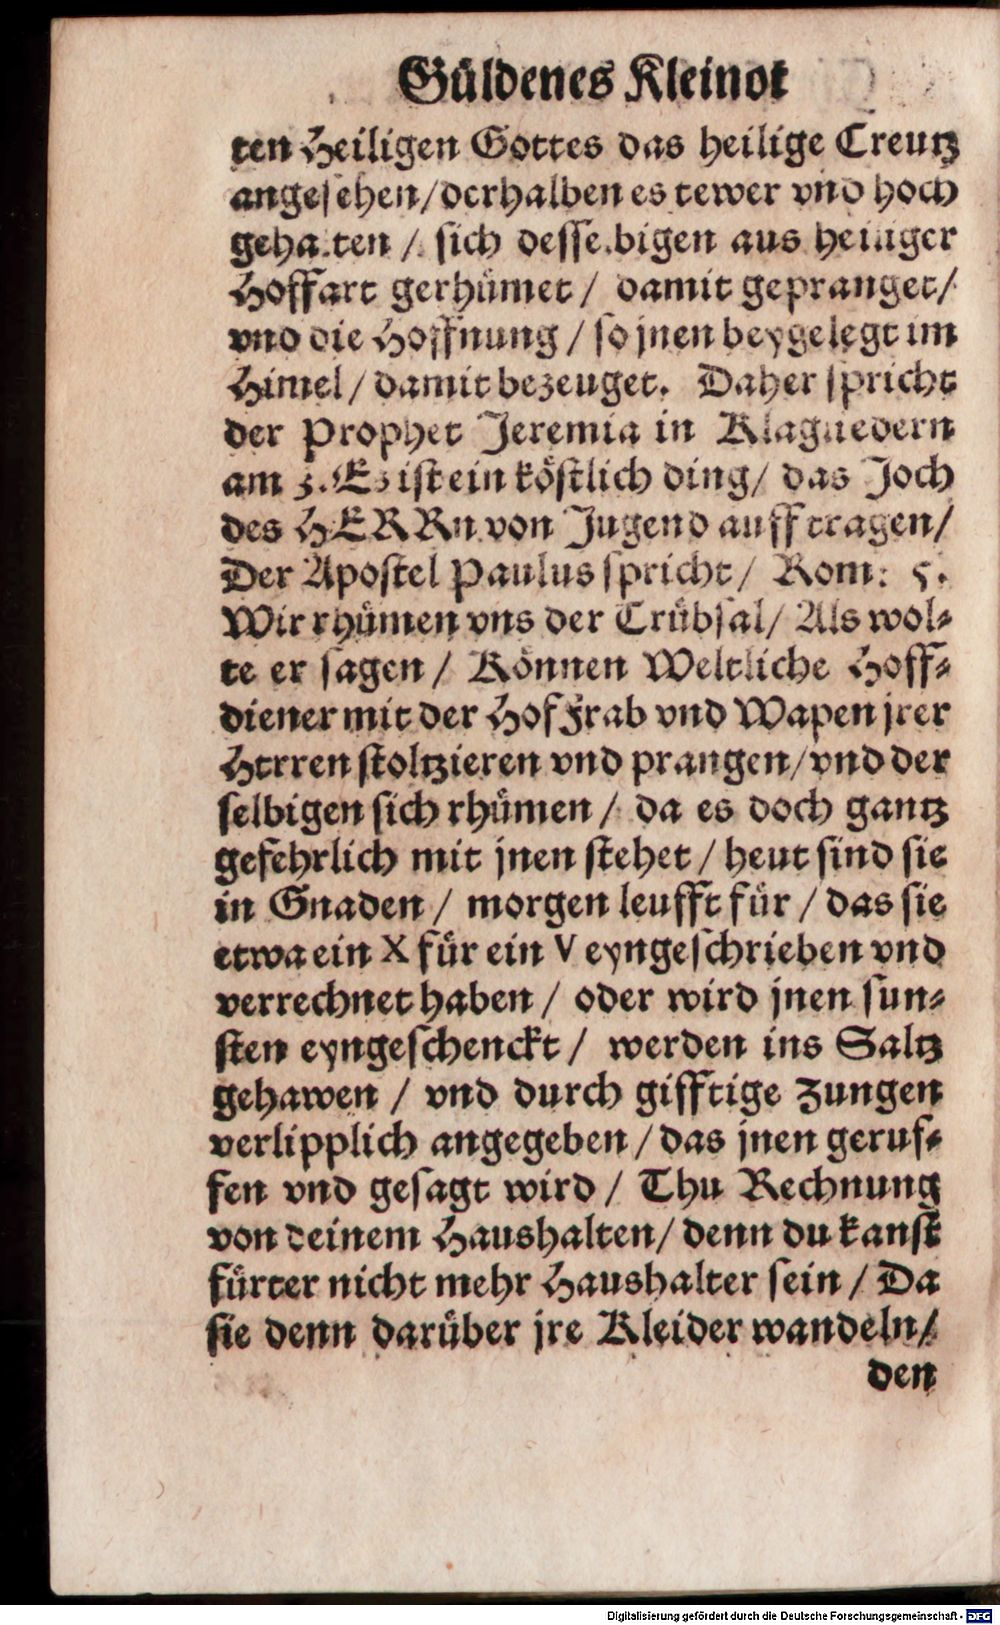 Güldenes Kleinot
ten Heiligen Gottes das heilige Creutz
angesehen/derhalben es tewer vnd hoch
gehalten / sich desselbigen aus heiliger
Hoffart gerhümet / damit gepranget/
vnd die Hoffnung / so jnen beygelegt im
Himel / damit bezeuget. Daher spricht
der Prophet Jeremia in Klagliedern
am 3. Es ist ein köstlich ding/ das Joch
des HERRn von Jugend auff tragen/
Der Apostel Paulus spricht/ Rom: 5.
Wir rhümen vns der Trübsal/ Als wol-
te er sagen / Können Weltliche Hoff-
diener mit der Hof Frab vnd Wapen jrer
Herren stoltzieren vnd prangen/vnd der
selbigen sich rhümen / da es doch gantz
gefehrlich mit jnen stehet / heut sind sie
in Gnaden / morgen leufft für / das sie
etwa ein X für ein V eyngeschrieben vnd
verrechnet haben / oder wird jnen sun-
sten eyngeschenckt / werden ins Saltz
gehawen / vnd durch gifftige Zungen
verlipplich angegeben / das jnen geruf-
fen vnd gesagt wird / Thu Rechnung
von deinem Haushalten/ denn du kanst
fürter nicht mehr Haushalter sein / Da
sie denn darüber jre Kleider wandeln/
den
Digitalisierung gefördert durch die Deutsche Forschungsgemeinschaft - DFG